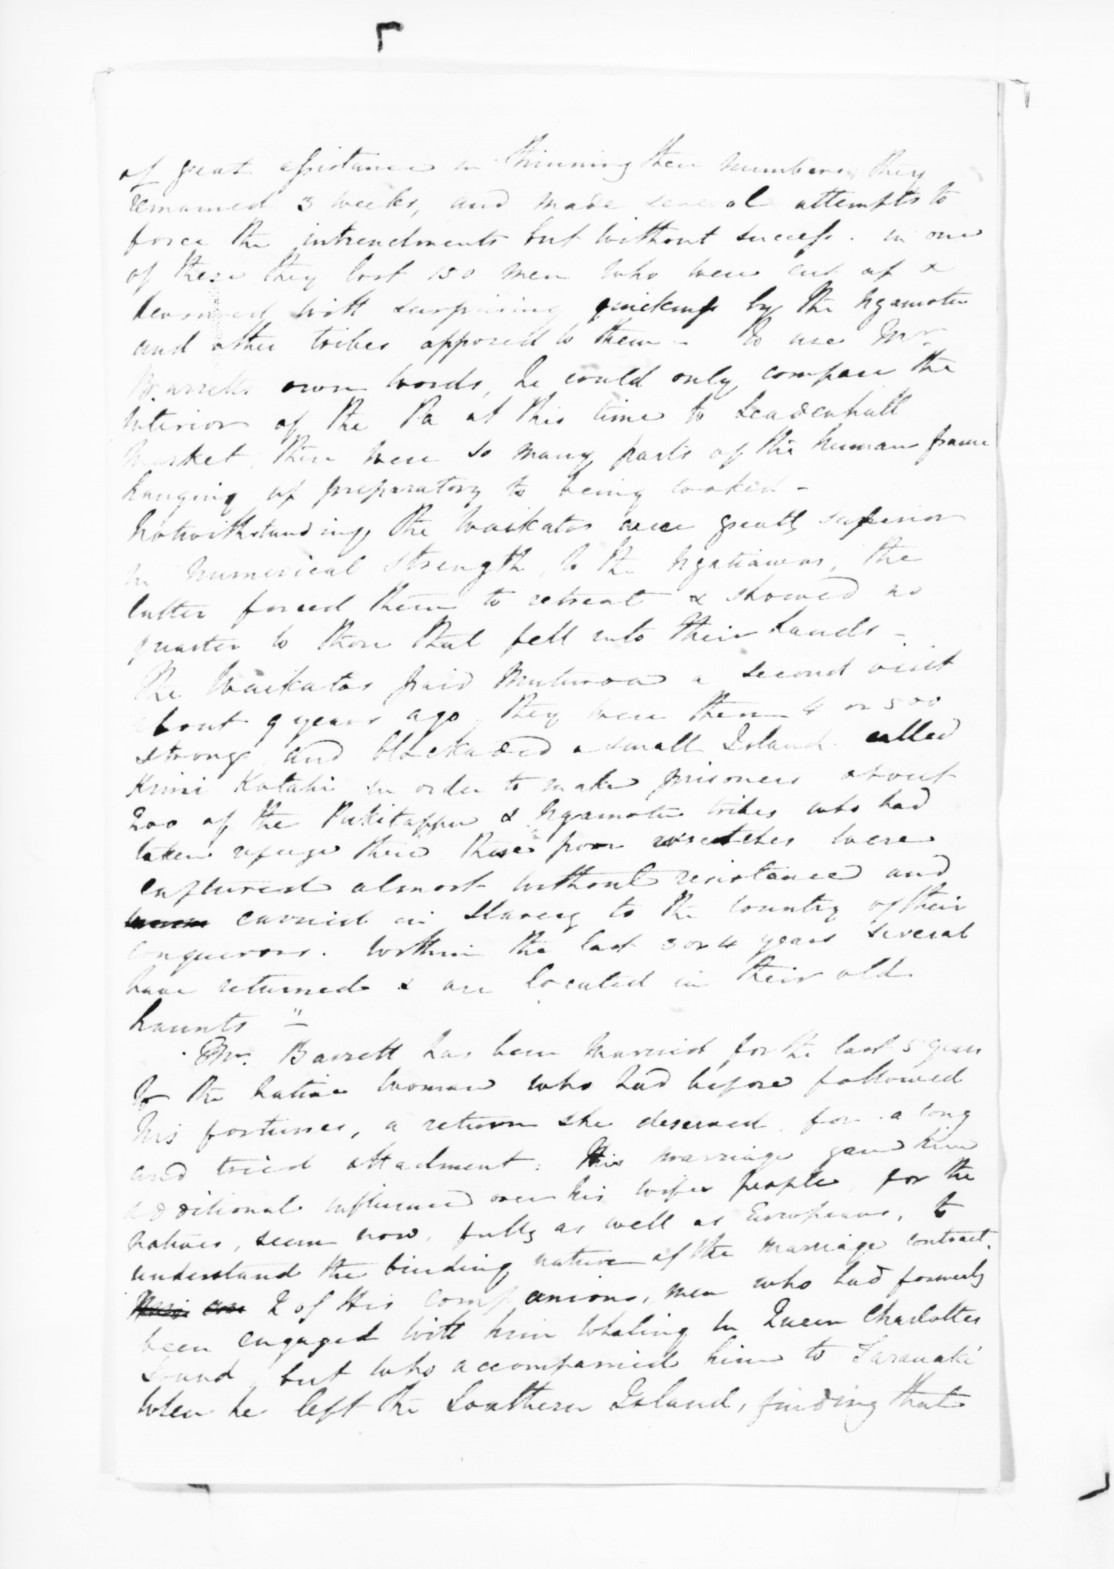 of great assistance in thinning their numbers, they
remained 3 weeks, and made several attempts to
force the intrenchments but without success. in one
of these they lost 150 men who were cut up &
devoured with surprising quickness by the Ngamotu
and other tribes opposed to them - To use Mr
Barretts own words, he could only compare the
interior of the Pa at this time to Leadenhall
market, there were so many parts of the human frame
hanging up preparatory to being cooked -
Notwithstanding the Waikatos were greatly superior
in numerical strength, to the Ngatiawas, the
latter forced them to retreat & showed no
quarter to those that fell into their hands -
The Waikatos paid Moturoa a second visit
about 9 years ago, they were then 4 or 500
strong, and blockaded a small Island called
200 of the Pukitappu & Ngamotu tribes who had
taken refuge there these poor wretches were
captured almost without resistance and
carried in slavery to the country of their
conquerors. Within the last 3 or 4 years several
have returned & are located in their old
haunts" -
Mr. Barrett has been married for the last 5 years
to the native woman who had before followed
his fortunes, a return she deserved for a long
and tried attachment: this marriage gave him
additional influence over his wifes people, for the
natives, seem now, fully as well as Europeans, to
understand the binding nature of the marriage contract.
2 of His companions, men who had formerly
been engaged with him whaling in Queen Charlottes
Sound, but who accompanied him to Taranaki
when he left the Southern Island, finding that